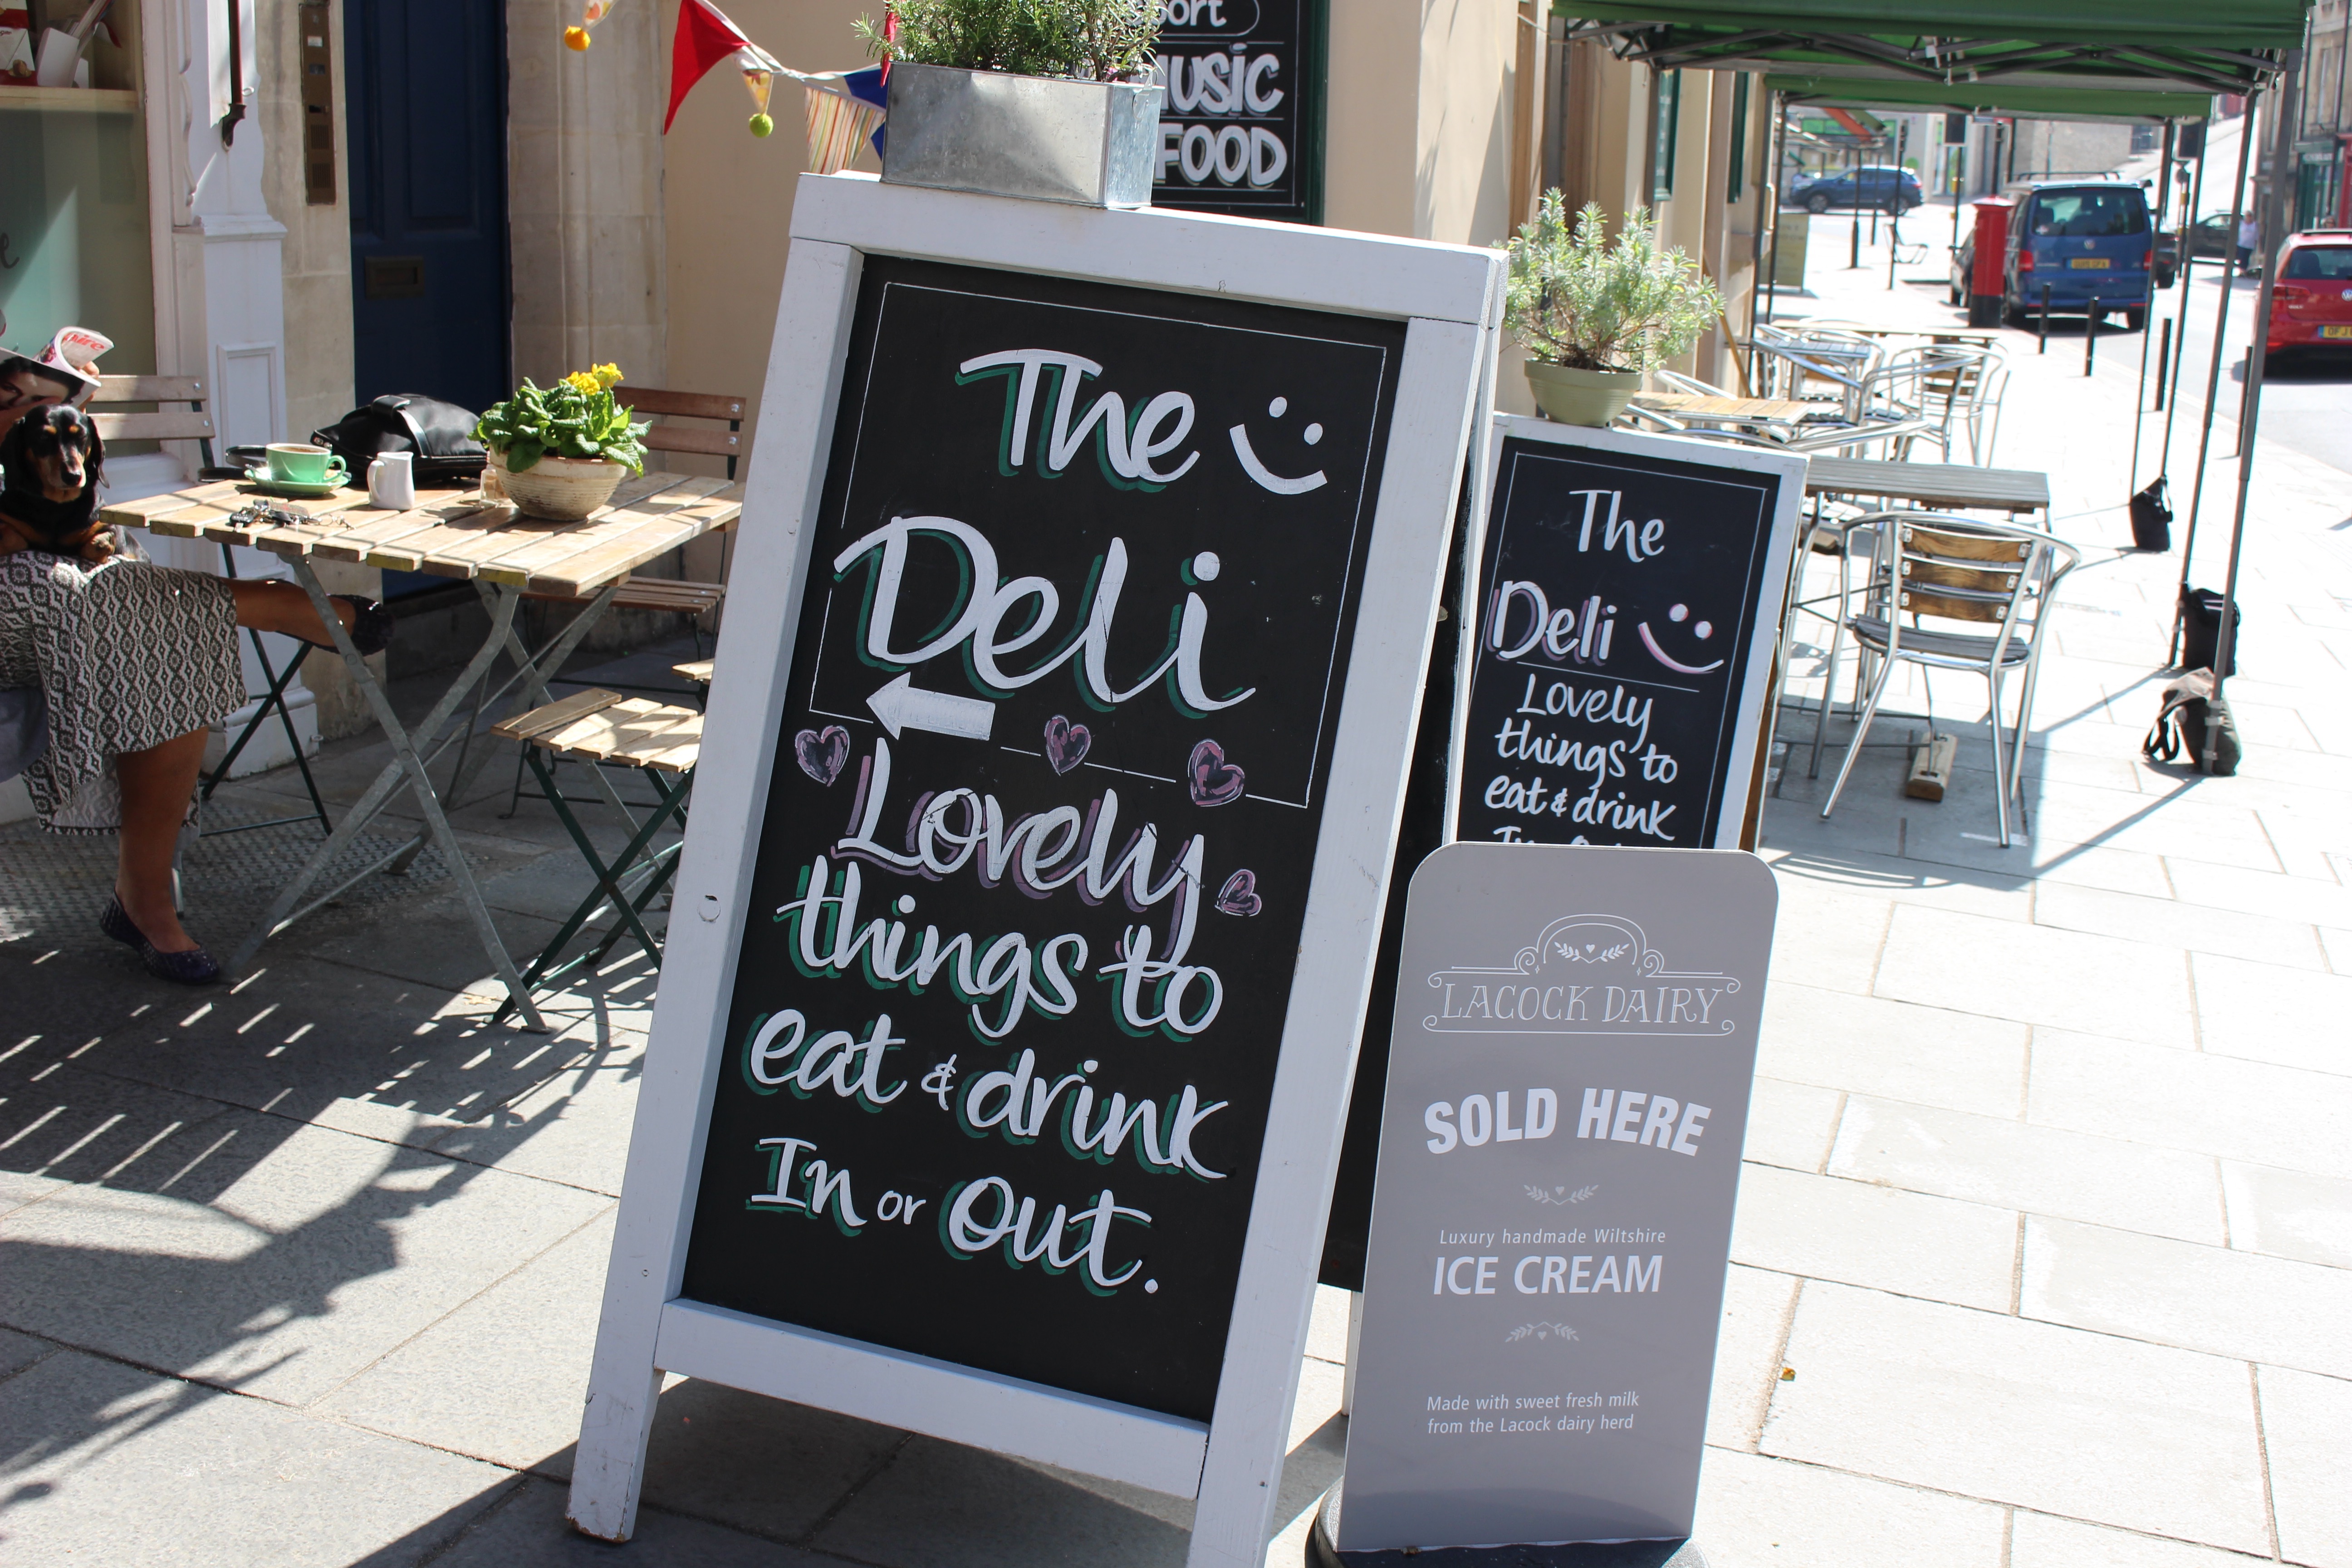 MUSIC
FOOD
The
Deli
Lovely
things to
eat & drink
In or out.
The
Deli
Lovely
things to
eat & drink
LACOCK DAIRY
SOLD HERE
Luxury handmade Wiltshire
ICE CREAM
Made with sweet fresh milk
from the Lacock dairy herd